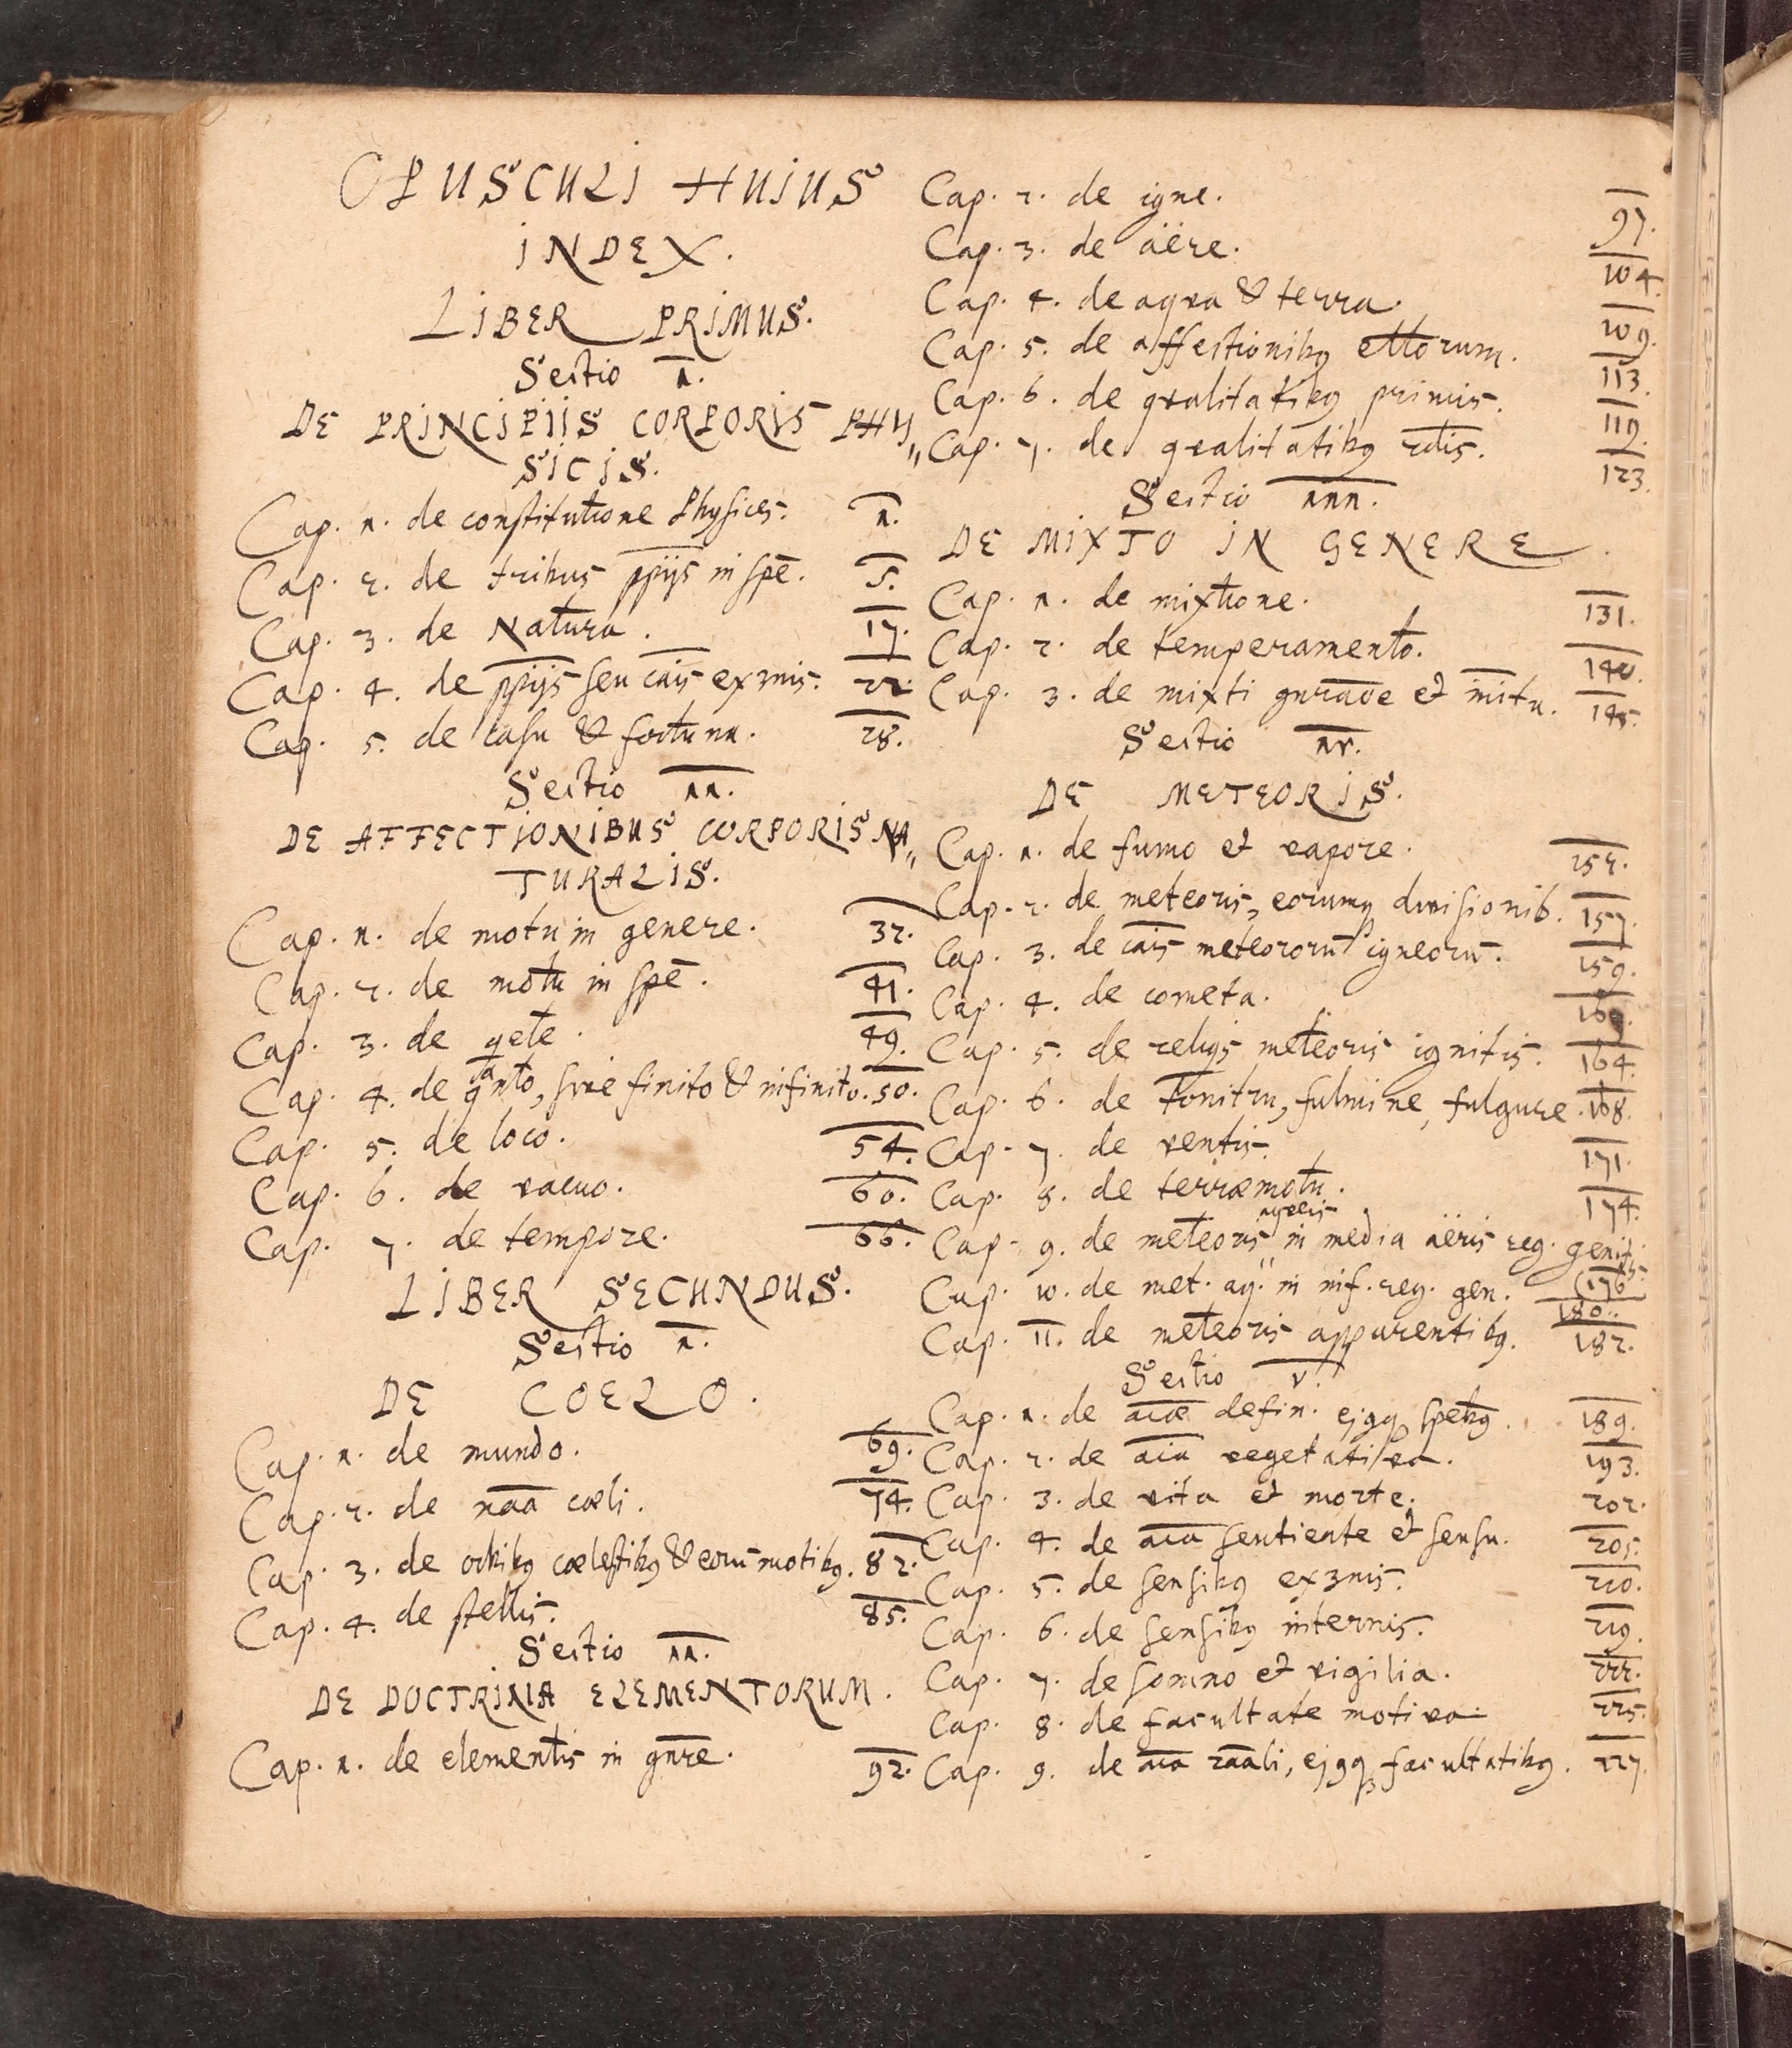 OPUSCULI HUIUS
INDEX.
LIBER PRIMUS.
Sectio 1.
DE PRINCIPIIS CORPORIS PHY„
SICIS.
Cap. 1. de constitutione Physices. 1.
Cap. 2. de tribus ppijs in spē. 5.
Cap. 3. de Natura. 17.
Cap. 4. de ppijs seu cāis ex3nis. 22.
Cap. 5. de casu & fortuna. 28.
Sectio 11.
DE AFFECTIONIBUS CORPORIS NA„
TURALIS.
Cap. 1. de motu in genere. 32.
Cap. 2. de motu in spē. 41.
Cap. 3. de qete. 49.
Cap. 4. de qanto, sive finito & infinito. 50.
Cap. 5. de loco. 54.
Cap. 6. de vacuo. 60.
Cap. 7. de tempore. 66.
LIBER SECUNDUS.
Sectio 1.
DE COELO.
Cap. 1. de mundo. 69.
Cap. 2. de nāa cœli. 74.
Cap. 3. de orbibꝰ cœlestibꝰ & eorum motibꝰ. 82.
Cap. 4. de stellis. 85.
Sectio 11.
DE DOCTRINA ELEMENTORUM.
Cap. 1. de elementis in gnre. 92.
Cap. 2. de igne. 97.
Cap. 3. de aëre. 104.
Cap. 4. de aqva & terra. 109.
Cap. 5. de affectionibꝰ ettorum. 113.
Cap. 6. de qvalitatibꝰ primis. 119.
Cap. 7. de qvalitatibꝰ 2dis. 123.
Sectio 111.
DE MIXTO IN GENERE.
Cap. 1. de mixtione. 131.
Cap. 2. de temperamento. 140.
Cap. 3. de mixti gnrāōe et initu. 145.
Sectio 1v.
DE METEORIS.
Cap. 1. de fumo et vapore. 152.
Cap. 2. de meteoris, eorumq divisionib. 157.
Cap. 3. de cāis meteororū igneorū. 159.
Cap. 4. de cometa.
Cap. 5. de reliqs meteoris ignitis. 164.
Cap. 6. de tonitru, fulmine, fulgure. 168.
Cap. 7. de ventis. 171.
Cap. 8. de terræmotu. 174.
Cap. 9. de meteoris aqveis in media aëris reg. genitis. (176
Cap. 10. de met. aq. in inf. reg. gen. 180.
Cap. 11. de meteoris apparentibꝰ. 182.
Sectio v.
Cap. 1. de aīæ defin. ejꝰq spebꝰ. 189.
Cap. 2. de aīa vegetativa. 193.
Cap. 3. de vita et morte. 202.
Cap. 4. de aīa sentiente et sensu. 205.
Cap. 5. de sensibꝰ ex3nis. 210.
Cap. 6. de sensibꝰ internis. 219.
Cap. 7. de somno et vigilia. 222.
Cap. 8. de facultate motiva. 225.
Cap. 9. de aīa rāāli, ejꝰq facultatibꝰ. 227.